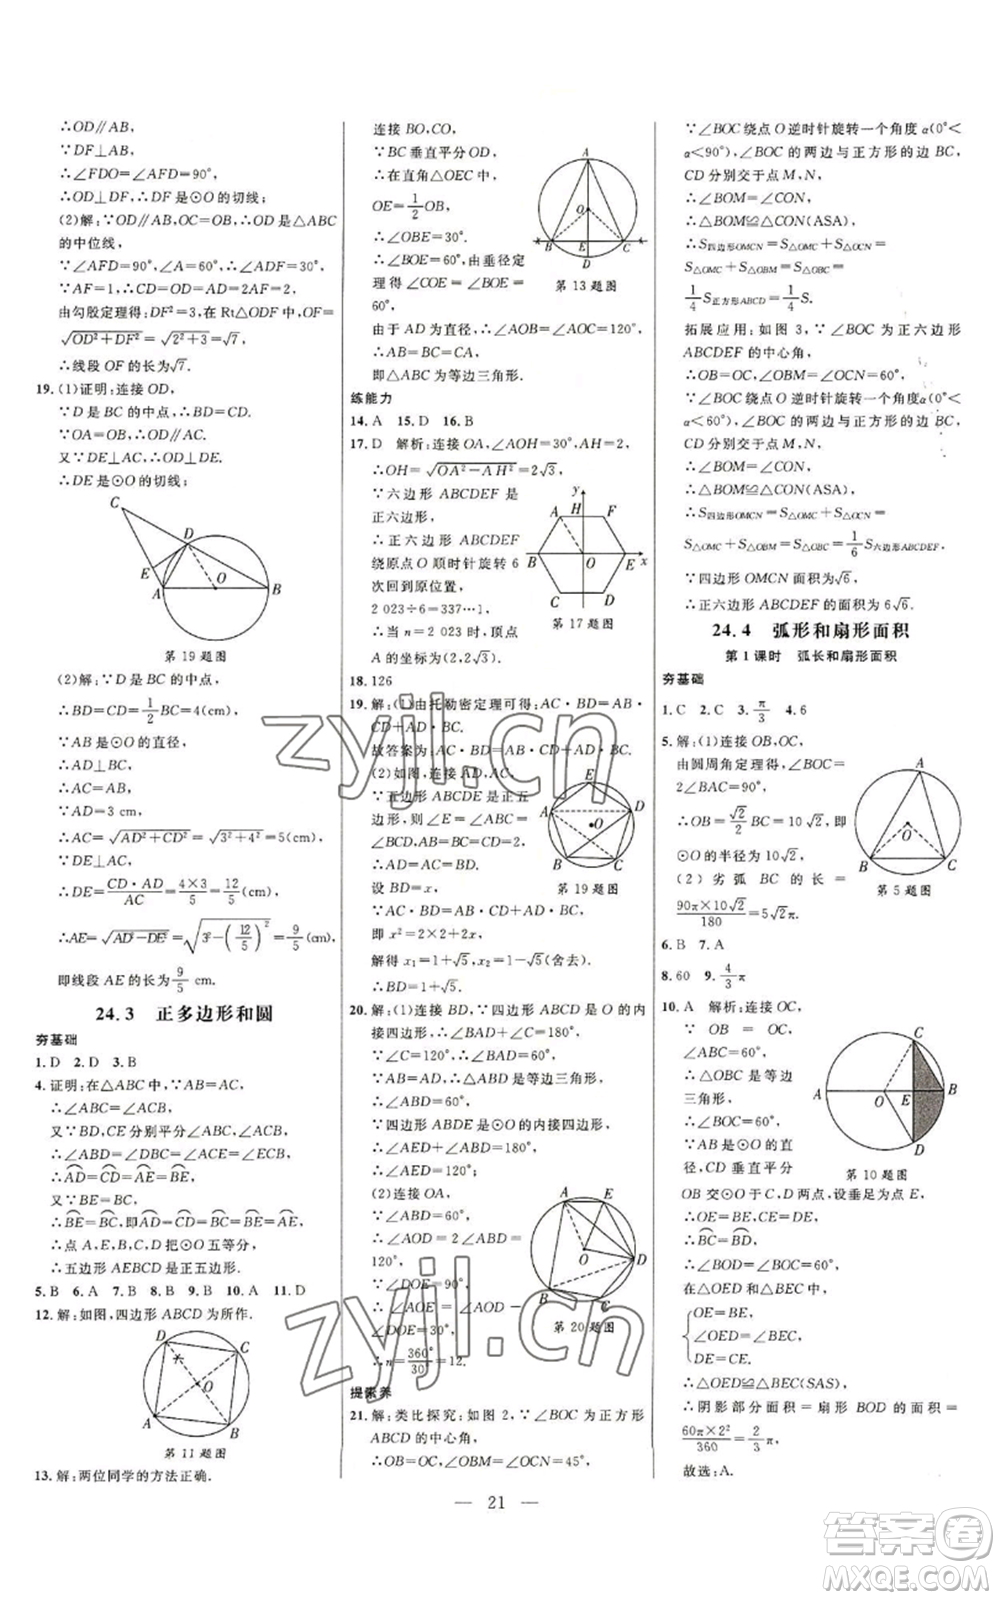 ∴OD∥AB,
∵DF⊥AB,
∴∠FDO=∠AFD=90°,
∴OD⊥DF,∴DF是⊙O的切线;
(2)解:∵OD∥AB,OC=OB,∴OD是△ABC
的中位线,
∵∠AFD=90°,∠A=60°,∴∠ADF=30°,
∵AF=1,∴CD=OD=AD=2AF=2,
由勾股定理得:DF²=3,在Rt△ODF中,OF=
√(OD²+DF²)=√(2²+3)=√7,
∴线段OF的长为√7.
19.(1)证明:连接OD,
∵D是BC的中点,∴BD=CD.
∵OA=OB,∴OD∥AC.
又∵DE⊥AC,∴DE⊥OD.
∴DE是⊙O的切线;
C
D
E
O
A
B
第19题图
(2)解:∵D是BC的中点,
∴BD=CD=1/2 BC=4(cm),
∵AB是⊙O的直径,
∴AD⊥BC,
∴AC=AB,
∵AD=3 cm,
∴AC=√(AD²+CD²)=√(3²+4²)=5(cm),
∵DE⊥AC,
∴DE=CD·AD/AC=4×3/5=12/5(cm),
∴AE=√(AD²-DE²)=√(3²-(12/5)²)=9/5(cm),
即线段AE的长为9/5 cm.
24.3 正多边形和圆
夯基础
1.D 2.D 3.B
4.证明:在△ABC中,∵AB=AC,
∴∠ABC=∠ACB,
又∵BD,CE分别平分∠ABC,∠ACB,
∴∠ABD=∠DBC=∠BCE=∠ACE,
∴AD=CD=AE=BE,
又∵BE=BC,
∴BE=BC,即AD=CD=BC=BE=AE,
∴点A,E,B,C,D把⊙O五等分,
∴五边形AEBCD是正五边形.
5.B 6.B 7.B 8.B 9.B 10.A 11.D
12.解:如图,四边形ABCD为所作.
D
C
O
A
B
第11题图
13.解:两位同学的方法正确.
连接BO,CO,
∵BC垂直平分OD,
∴在直角△OEC中,
OE=1/2 OB,
∴∠OBE=30°.
∴∠BOE=60°,由垂径定
理得∠COE=∠BOE=
60°,
由于AD为直径,∴∠AOB=∠AOC=120°,
∴AB=BC=CA,
即△ABC为等边三角形.
A
O
B
E
C
D
第13题图
练能力
14.A 15.D 16.B
17.D 解析:连接OA,∠AOH=30°,AH=2,
∴OH=√(OA²-AH²)=2√3,
∵六边形ABCDEF是
正六边形,
∴正六边形ABCDEF
绕原点O顺时针旋转6
次回到原位置,
2 023÷6=337…1,
∴当n=2 023时,顶点
A的坐标为(2,2√3).
y
A H F
B O E x
C D
第17题图
18.126
19.解:(1)由托勒密定理可得:AC·BD=AB·
CD+AD·BC.
故答案为:AC·BD=AB·CD+AD·BC.
(2)如图,连接AD,AC,
∵五边形ABCDE是正五
边形,则∠E=∠ABC=
∠BCD,
∴AD=AC=BD.
设BD=x,
∵AC·BD=AB·CD+AD·BC,
即x²=2×2+2x,
解得x₁=1+√5,x₂=1-√5(舍去).
∴BD=1+√5.
E
A
D
O
B
C
第19题图
20.解:(1)连接BD,∵四边形ABCD是⊙O的内
接四边形,∴∠BAD+∠C=180°,
∵∠C=120°,∴∠BAD=60°,
∵AB=AD,∴△ABD是等边三角形,
∴∠ABD=60°,
∵四边形ABDE是⊙O的内接四边形,
∴∠AED+∠ABD=180°,
∴∠AED=120°;
(2)连接OA,
∵∠ABD=60°,
∴∠AOD=2∠ABD=
120°,
∵∠DOE=90°,
∴∠AOE=∠AOD-
∠DOE=30°,
∴n=360°/30°=12.
A
E
O
D
B
C
第20题图
提素养
21.解:类比探究:如图2,∵∠BOC为正方形
ABCD的中心角,
∴OB=OC,∠OBM=∠OCN=45°,
∵∠BOC绕点O逆时针旋转一个角度α(0°<
α<90°),∠BOC的两边与正方形的边BC,
CD分别交于点M,N,
∴∠BOM=∠CON,
∴△BOM≌△CON(ASA),
∴S四边形OMCN=S△OMC+S△CON=
S△OMC+S△OBM=S△OBC=
1/4 S正方形ABCD=1/4 S.
拓展应用:如图3,∵∠BOC为正六边形
ABCDEF的中心角,
∴OB=OC,∠OBM=∠OCN=60°,
∵∠BOC绕点O逆时针旋转一个角度α(0°<
α<60°),∠BOC的两边与正六边形的边BC,
CD分别交于点M,N,
∴∠BOM=∠CON,
∴△BOM≌△CON(ASA),
∴S四边形OMCN=S△OMC+S△CON=
S△OMC+S△OBM=S△OBC=1/6 S六边形ABCDEF,
∵四边形OMCN面积为√6,
∴正六边形ABCDEF的面积为6√6.
24.4 弧形和扇形面积
第1课时 弧长和扇形面积
夯基础
1.C 2.C 3.π/3 4.6
5.解:(1)连接OB,OC,
由圆周角定理得,∠BOC=
2∠BAC=90°,
∴OB=√2/2 BC=10√2,即
⊙O的半径为10√2,
(2)劣弧BC的长=
90π×10√2/180=5√2π.
A
O
B
C
第5题图
6.B 7.A
8.60 9.4/3 π
10.A 解析:连接OC,
∵OB=OC,
∠ABC=60°,
∴△OBC是等边
三角形,
∴∠BOC=60°,
∵AB是⊙O的直
径,CD垂直平分
OB交⊙O于C,D两点,设垂足为点E,
∴OE=BE,CE=DE,
∴BC=BD,
∴∠BOD=∠BOC=60°,
在△OED和△BEC中,
OE=BE,
∠OED=∠BEC,
DE=CE,
∴△OED≌△BEC(SAS),
∴阴影部分面积=扇形BOD的面积=
60π×2²/360=2/3 π,
故选:A.
C
A
O
E
B
D
第10题图
— 21 —
zyjl.cn
zyjl.cn
答案卷
MXQE.COM